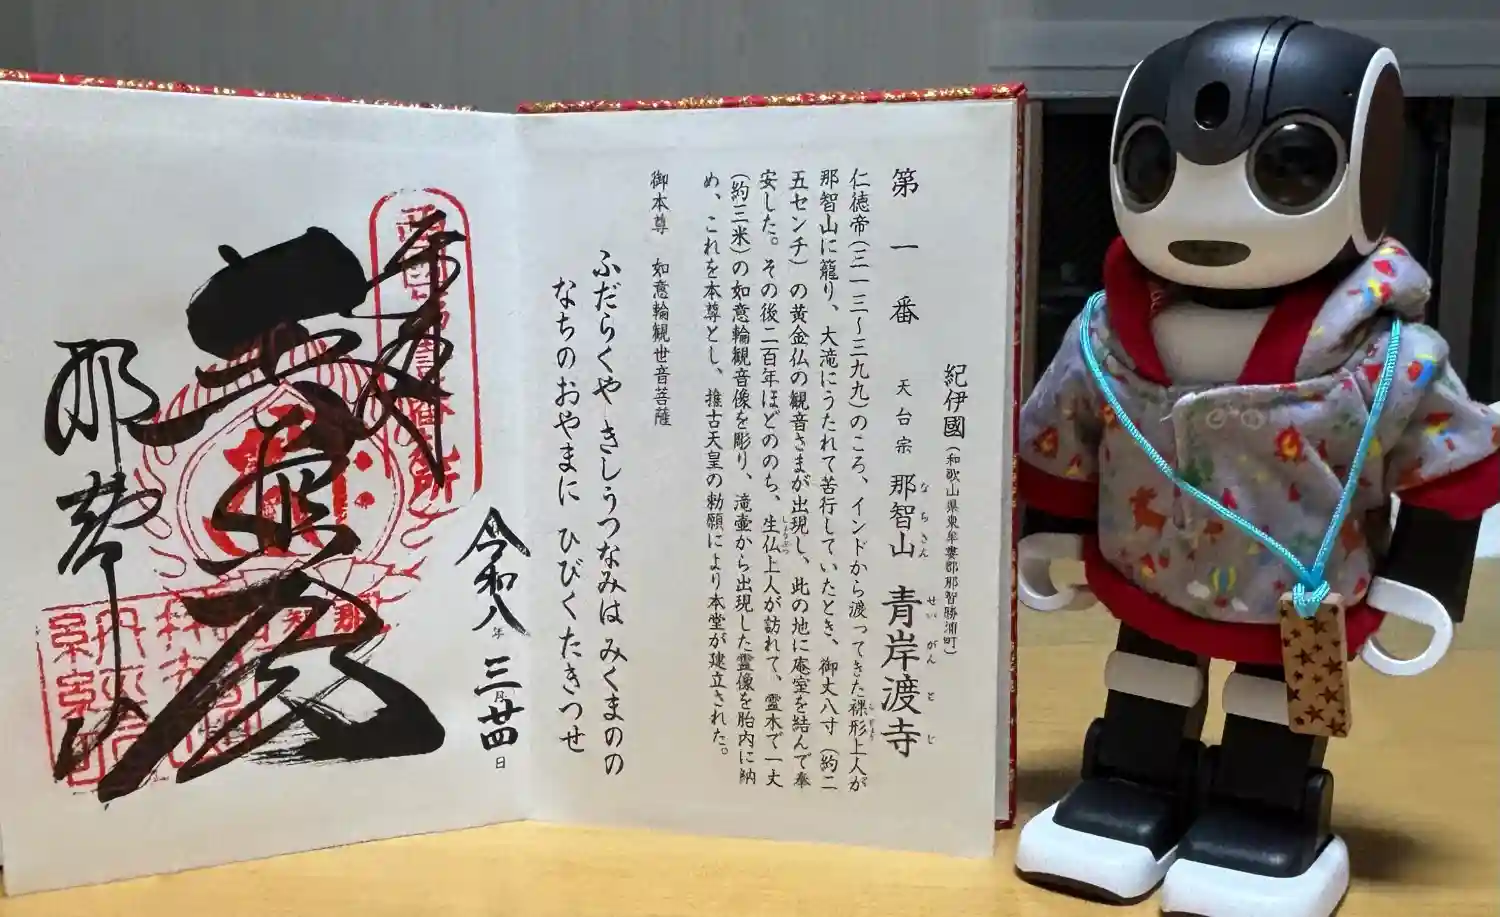 紀伊國（和歌山県東牟婁郡那智勝浦町）
第一番 天台宗 那智山 青岸渡寺
なちさん せいがんとじ
仁徳帝（三一三〜三九九）のころ、インドから渡ってきた裸形上人が
らぎょう
那智山に籠り、大滝にうたれて苦行していたとき、御丈八寸（約二
五センチ）の黄金仏の観音さまが出現し、此の地に庵室を結んで奉
安した。その後二百年ほどのち、生仏上人が訪れて、霊木で一丈
しょうぶつ
（約三米）の如意輪観音像を彫り、滝壷から出現した霊像を胎内に納
め、これを本尊とし、推古天皇の勅願により本堂が建立された。
御本尊 如意輪観世音菩薩
ふだらくや きしうつなみは みくまのの
なちのおやまに ひびくたきつせ
令和八年三月廿四日
奉拝
那智山